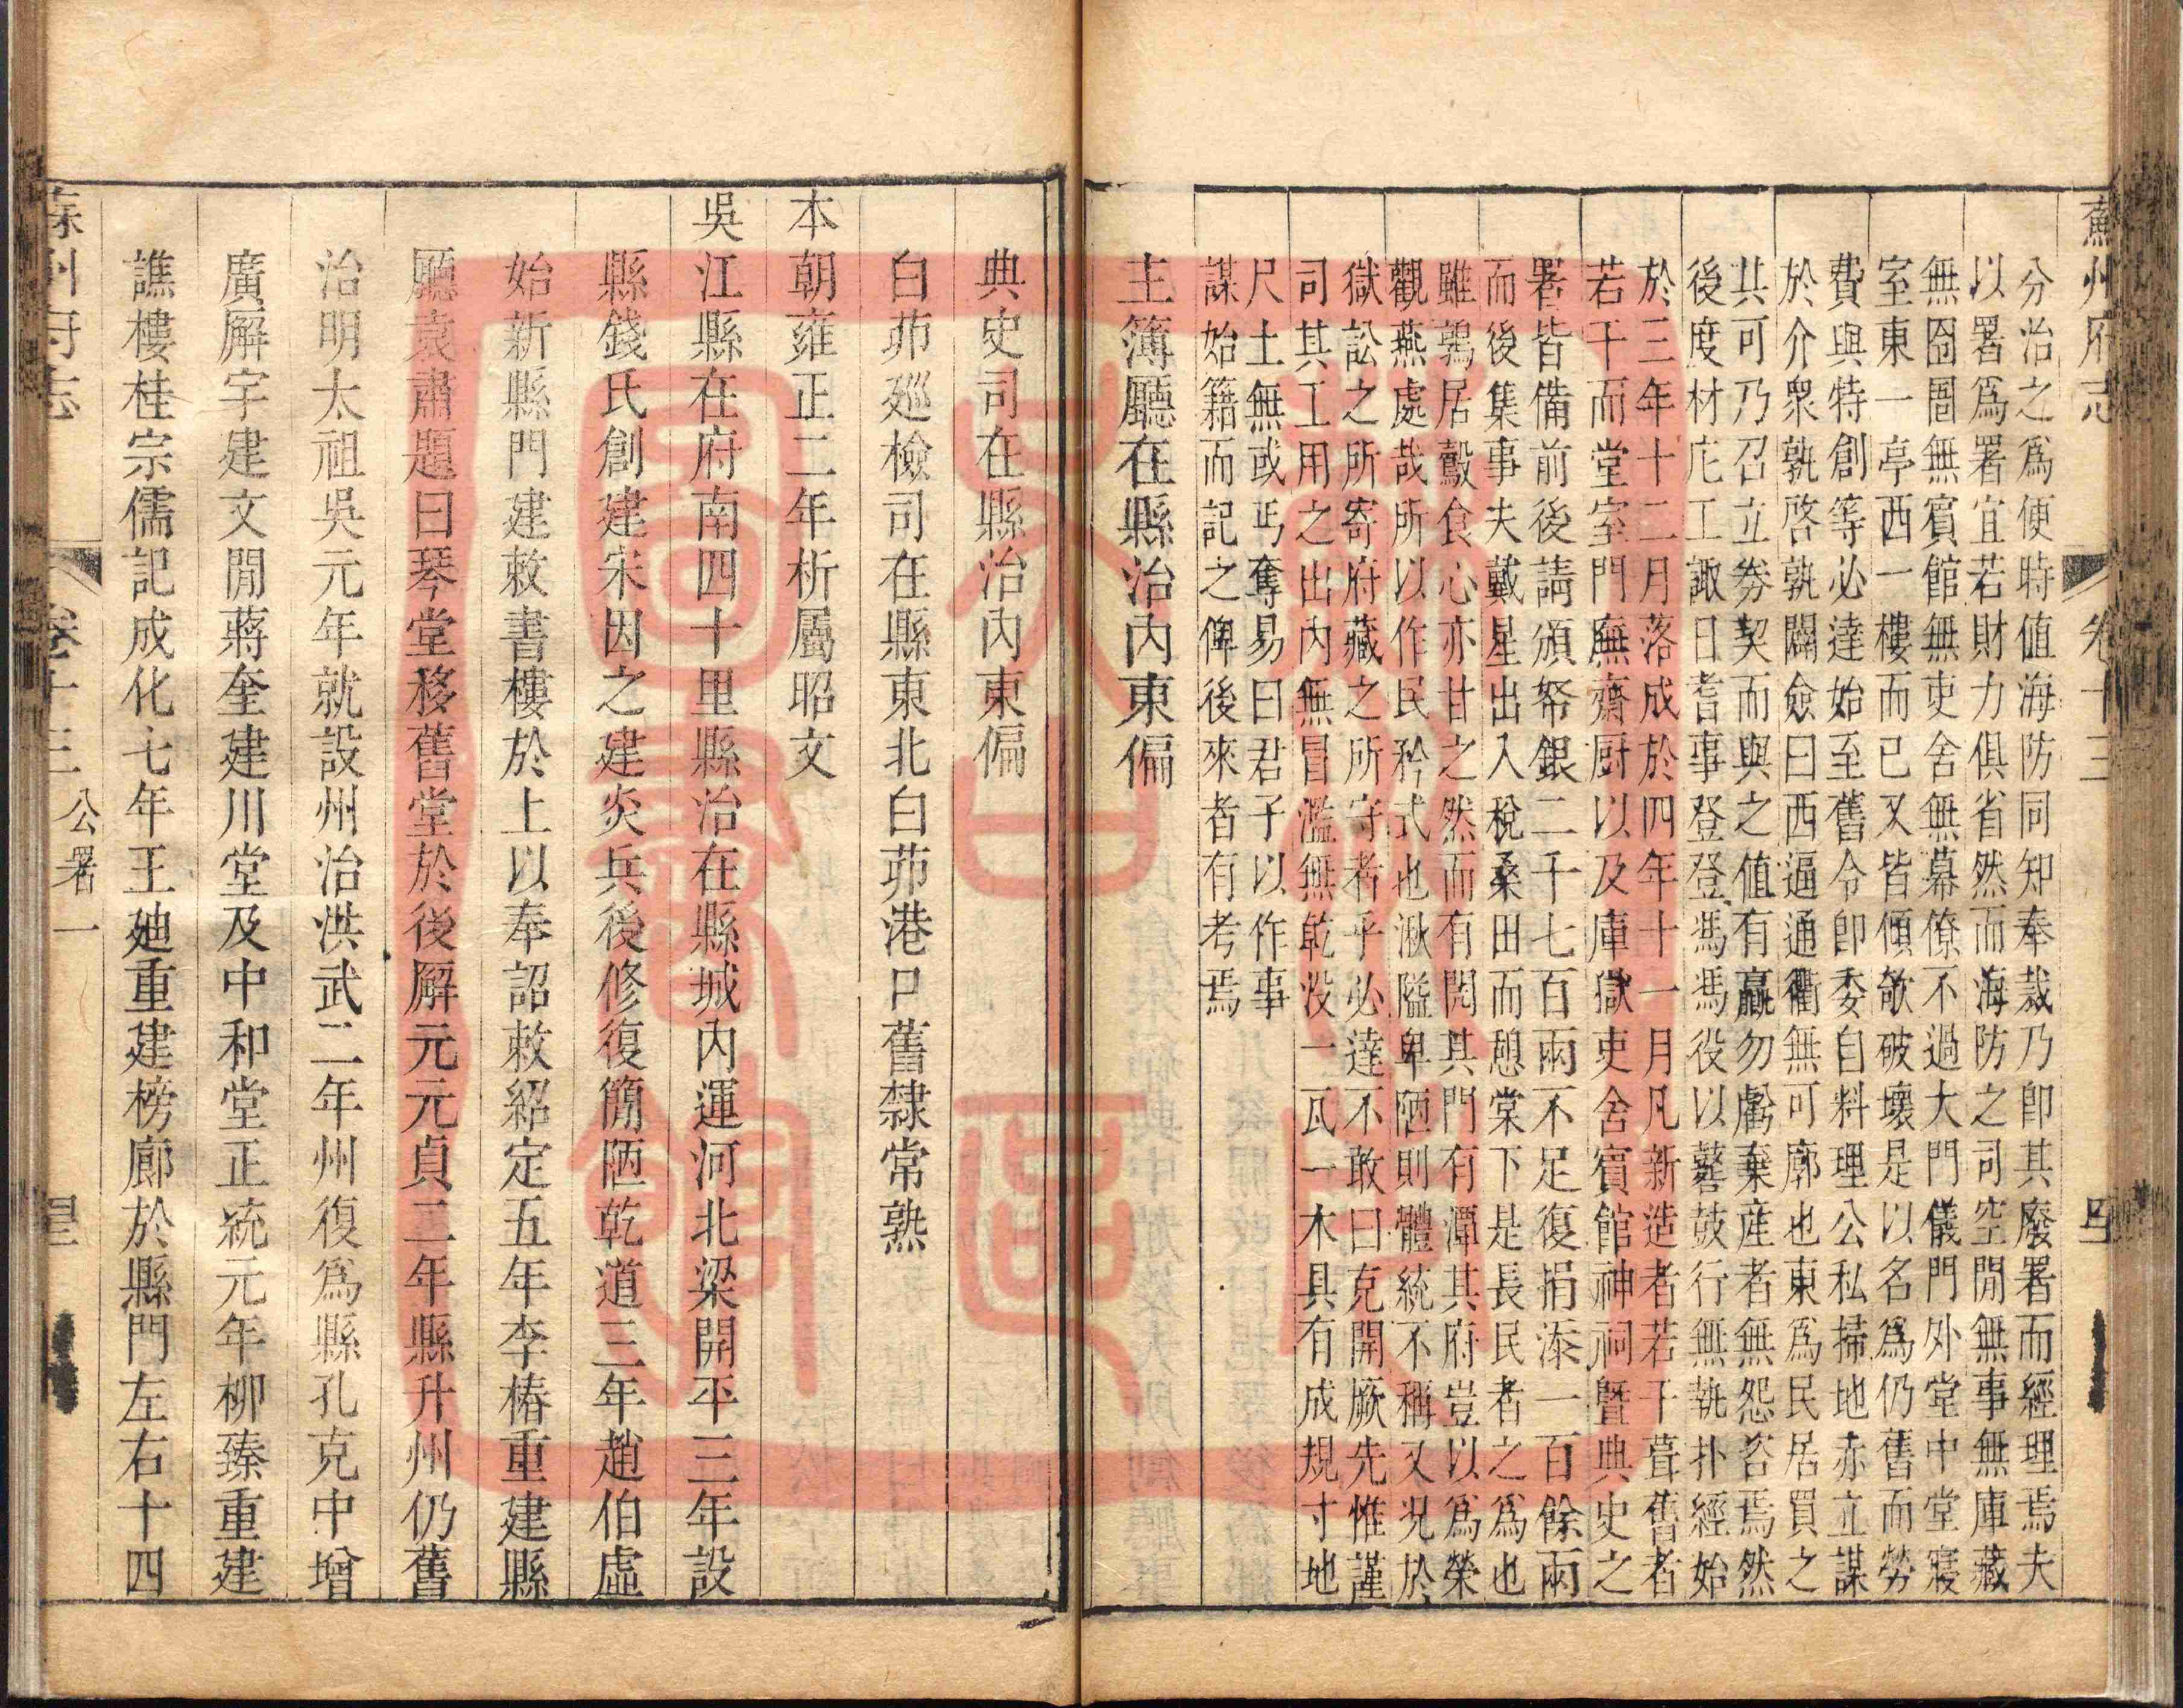 蘇州府志 卷十三
分治之爲便時值海防同知奉裁乃卽其廢署而經理焉夫
以署爲署宜若財力俱省然而海防之司空閒無事無庫藏
無囹圄無賓館無吏舍無幕僚不過大門儀門外堂中堂寢
室東一亭西一樓而已又皆傾欹破壞是以名爲仍舊而勞
費與特創等必達始至舊令卽委自料理公私掃地赤立謀
於介衆孰啓孰闢僉曰西逼通衢無可廓也東爲民居買之
其可乃召立券契而與之值有贏勿虧棄産者無怨咨焉然
後度材庀工諏日耆事登登馮馮役以鼛鼓行無執扑經始
於三年十二月落成於四年十一月凡新造者若干葺舊者
若干而堂室門廡齋厨以及庫獄吏舍賓館神祠曁典史之
署皆備前後請頒帑銀二千七百兩不足復捐添一百餘兩
而後集事夫戴星出入稅桑田而憩棠下是長民者之爲也
雖鶉居鷇食心亦甘之然而有閎其門有潭其府豈以爲榮
觀燕處哉所以作民矜式也湫隘卑陋則體統不稱又況於
獄訟之所寄府藏之所守者乎必達不敢曰克開厥先惟謹
司其工用之出內無冒濫無乾没一瓦一木具有成規寸地
尺土無或丐奪易曰君子以作事
謀始籍而記之俾後來者有考焉
主簿廳在縣治內東偏
典史司在縣治內東偏
白茆廵檢司在縣東北白茆港口舊隸常熟
本朝雍正二年析屬昭文
吳江縣在府南四十里縣治在縣城內運河北梁開平三年設
縣錢氏創建宋因之建炎兵後修復簡陋乾道三年趙伯虛
始新縣門建敕書樓於上以奉詔敕紹定五年李椿重建縣
廳袁肅題曰琴堂移舊堂於後廨元元貞二年縣升州仍舊
治明太祖吳元年就設州治洪武二年州復爲縣孔克中增
廣廨宇建文閒蔣奎建川堂及中和堂正統元年柳臻重建
譙樓桂宗儒記成化七年王廸重建榜廊於縣門左右十四
蘇州府志 卷十三 公署一